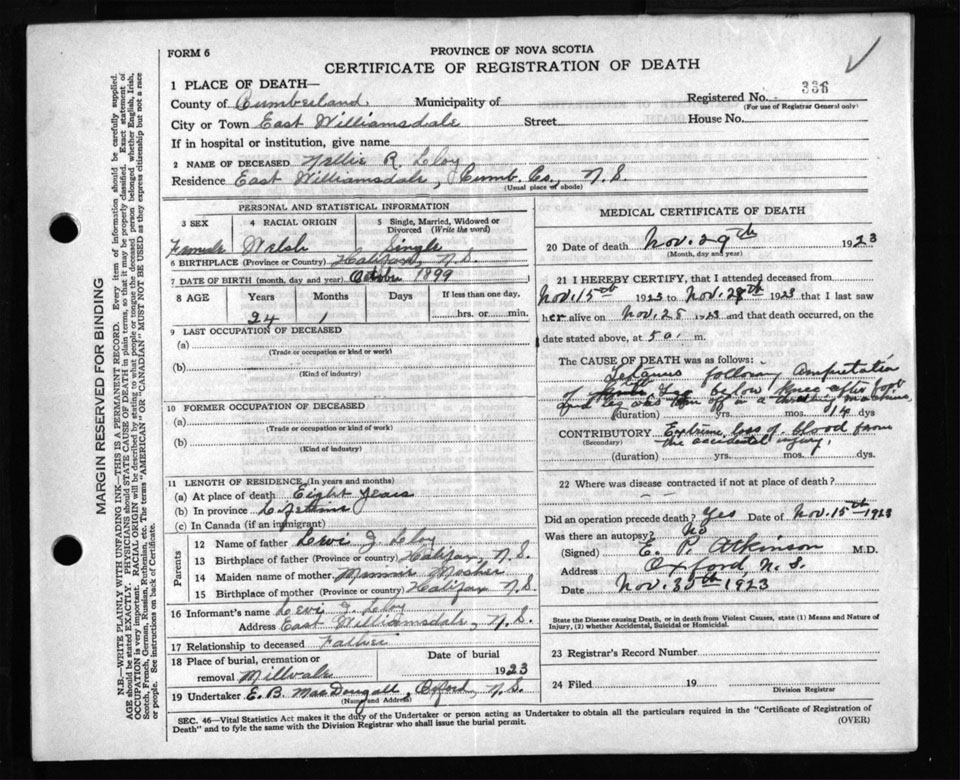 FORM 6
PROVINCE OF NOVA SCOTIA
CERTIFICATE OF REGISTRATION OF DEATH
1 PLACE OF DEATH—
Registered No. 336
(For use of Registrar General only)
County of Cumberland. Municipality of
City or Town East Williamsdale Street House No.
If in hospital or institution, give name
2 NAME OF DECEASED Nellie R. Lloy
Residence East Williamsdale, Cumb. Co., N.S.
(Usual place of abode)
PERSONAL AND STATISTICAL INFORMATION
3 SEX 4 RACIAL ORIGIN 5 Single, Married, Widowed or Divorced (Write the word)
Female Welsh Single
6 BIRTHPLACE (Province or Country) Halifax, N.S.
7 DATE OF BIRTH (month, day and year) October 1899
8 AGE Years Months Days If less than one day,
24 1 hrs. or min.
9 LAST OCCUPATION OF DECEASED
(a)
(Trade or occupation or kind or work)
(b)
(Kind of industry)
10 FORMER OCCUPATION OF DECEASED
(a)
(Trade or occupation or kind or work)
(b)
(Kind of industry)
11 LENGTH OF RESIDENCE (in years and months)
(a) At place of death Eight years
(b) In province Lifetime
(c) In Canada (if an immigrant)
Parents
12 Name of father Levi J. Lloy
13 Birthplace of father (Province or country) Halifax, N.S.
14 Maiden name of mother Minnie Mosher
15 Birthplace of mother (Province or country) Halifax N.S.
16 Informant's name Levi J. Lloy
Address East Williamsdale, N.S.
17 Relationship to deceased Father
18 Place of burial, cremation or removal Millvale Date of burial 1923
19 Undertaker E. B. MacDougall, Oxford, N.S.
(Name and Address)
MEDICAL CERTIFICATE OF DEATH
20 Date of death Nov. 29th 1923
(Month, day and year)
21 I HEREBY CERTIFY, that I attended deceased from
Nov. 15th 1923 to Nov. 28th 1923 that I last saw
her alive on Nov. 28 1923 and that death occurred, on
date stated above, at 5 a. m.
The CAUSE OF DEATH was as follows:
Tetanus following amputation
of leg below knee after foot
and leg was torn off in a machine
(duration) yrs. mos. 14 dys
CONTRIBUTORY Extreme loss of blood from
(Secondary) the accidental injury.
(duration) yrs. mos. dys.
22 Where was disease contracted if not at place of death?
Did an operation precede death? Yes Date of Nov. 15th 1923
Was there an autopsy? No
(Signed) E. P. Atkinson M.D.
Address Oxford, N.S.
Date Nov. 30th 1923
State the Disease causing Death, or in death from Violent Causes, state (1) Means and Nature of Injury, (2) whether Accidental, Suicidal or Homicidal.
23 Registrar's Record Number
24 Filed 19
Division Registrar
SEC. 46—Vital Statistics Act makes it the duty of the Undertaker or person acting as Undertaker to obtain all the particulars required in the "Certificate of Registration of
Death" and to fyle the same with the Division Registrar who shall issue the burial permit.
(OVER)
MARGIN RESERVED FOR BINDING
N.B.—WRITE PLAINLY WITH UNFADING INK—THIS IS A PERMANENT RECORD. Every item of information should be carefully supplied.
AGE should be stated EXACTLY. PHYSICIANS should STATE CAUSE OF DEATH in plain terms, so that it may be properly classified. Exact statement of
OCCUPATION is very important. RACIAL ORIGIN will be described by stating to what people or tongue the deceased person belonged whether English, Irish,
Scotch, French, German, Russian, Ruthenian, etc. The terms "AMERICAN" OR "CANADIAN" MUST NOT BE USED as they express citizenship but not a race
or people. See instructions on back of Certificate.